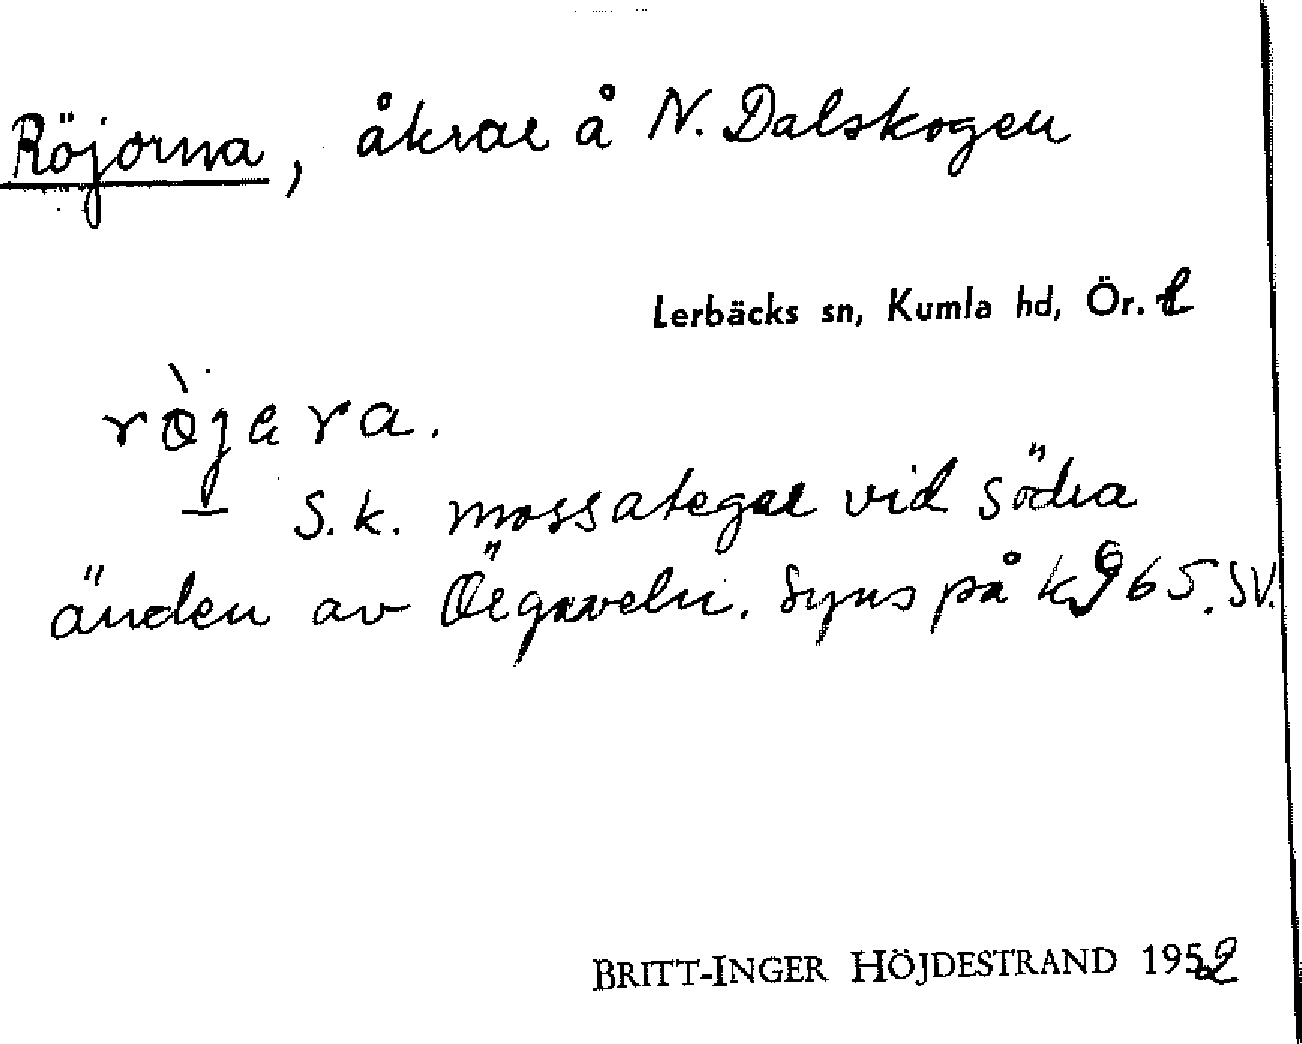 Röjorna, åkrar å N. Dalskogen
Lerbäcks sn, Kumla hd, Ör. l
S.k. mossategar vid södra
änden av Syns på k965. SV.
BRITT-INGER HÖJDESTRAND 1952